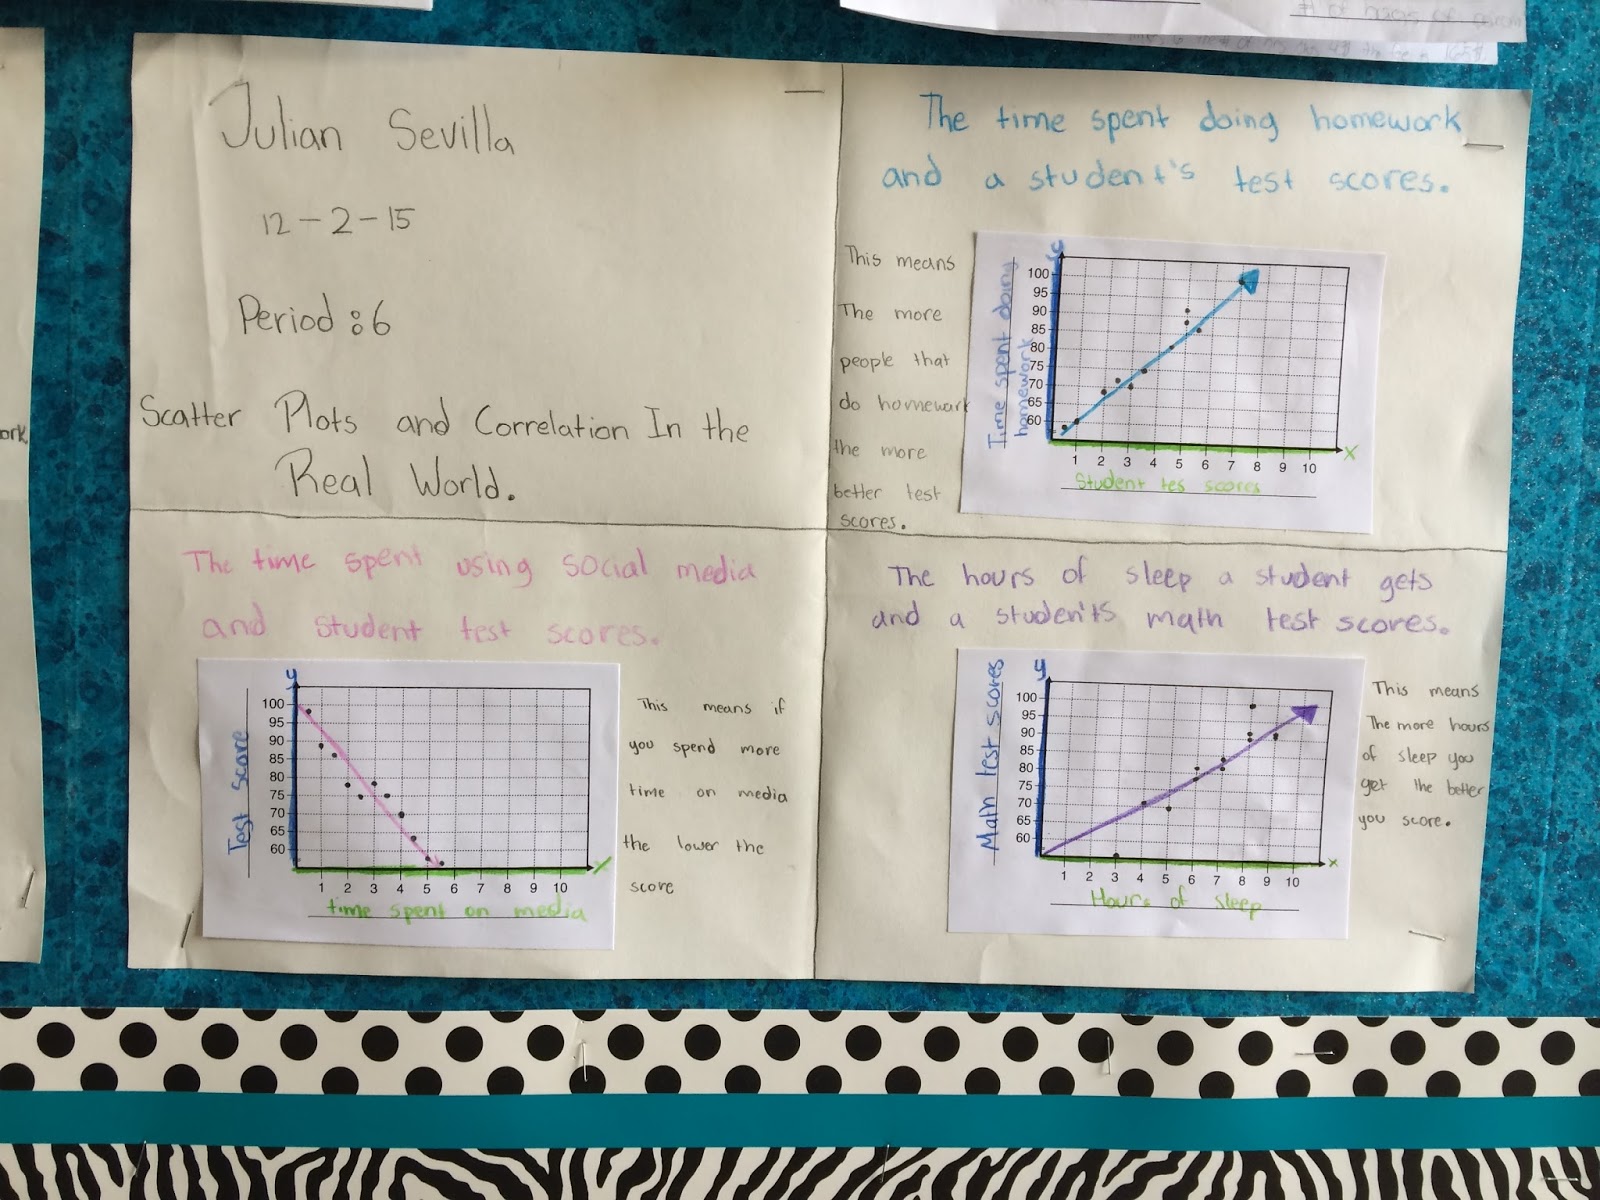 # of hours of
ork
Julian Sevilla
12-2-15
Period:6
Scatter Plots and Correlation In the
Real World.
The time spent doing homework
and a student's test scores.
This means
The more
people that
do homework
the more
better test
scores.
Time spent doing
homework
y
100
95
90
85
80
75
70
65
60
1 2 3 4 5 6 7 8 9 10
x
Student tes scores
The time spent using social media
and student test scores.
Test score
y
100
95
90
85
80
75
70
65
60
1 2 3 4 5 6 7 8 9 10
x
time spent on media
This means if
you spend more
time on media
the lower the
score
The hours of sleep a student gets
and a studen'ts math test scores.
Math test scores
y
100
95
90
85
80
75
70
65
60
1 2 3 4 5 6 7 8 9 10
x
Hours of sleep
This means
The more hours
of sleep you
get the better
you score.